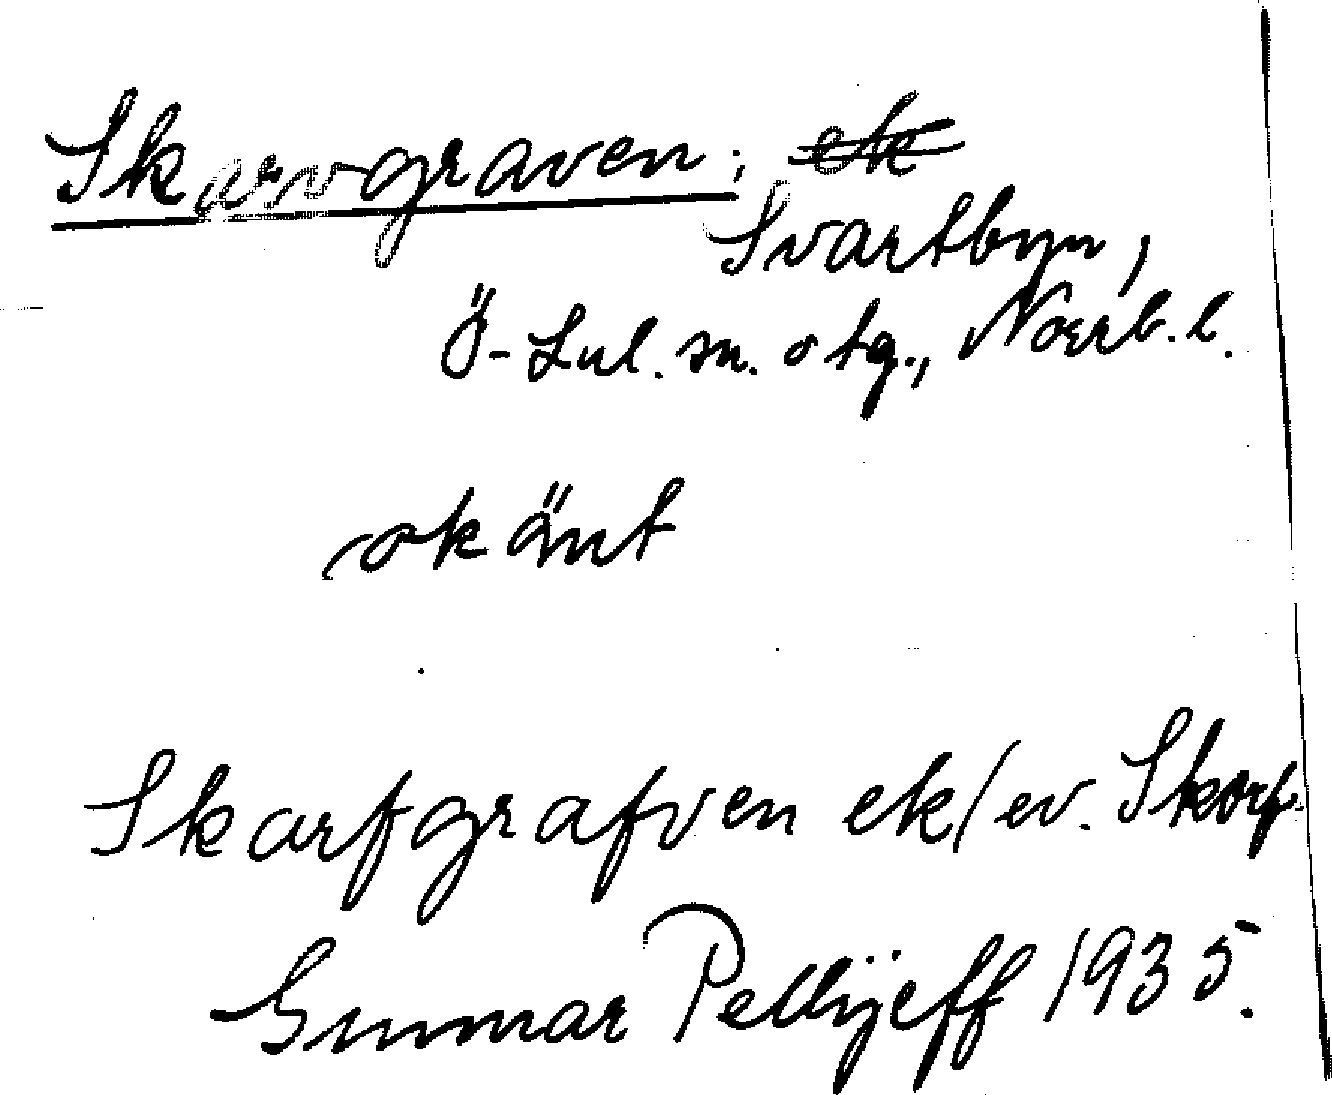 Skarvgraven; ek
Svartbyn,
Ö-Lul. sn. o tg., Norrb. l.
okänt
Skarfgrafven ek/ev. Skorf
Gunnar Pellijeff 1935.